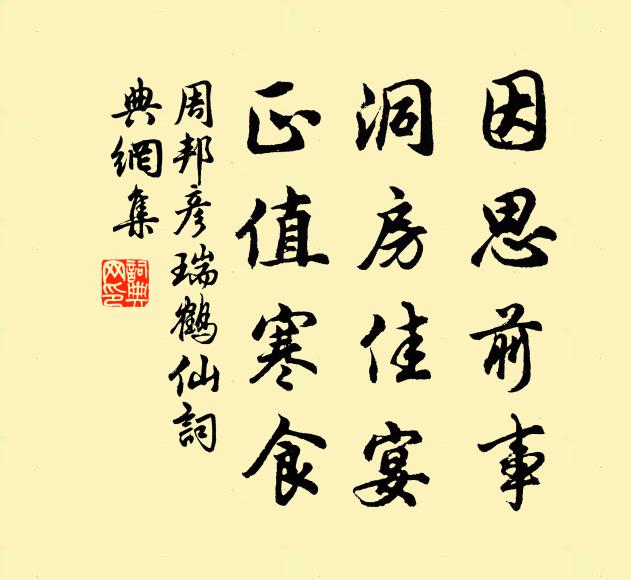 因思前事
洞房佳宴
正值寒食
周邦彦瑞鶴仙詞
典網集
詞典
网印